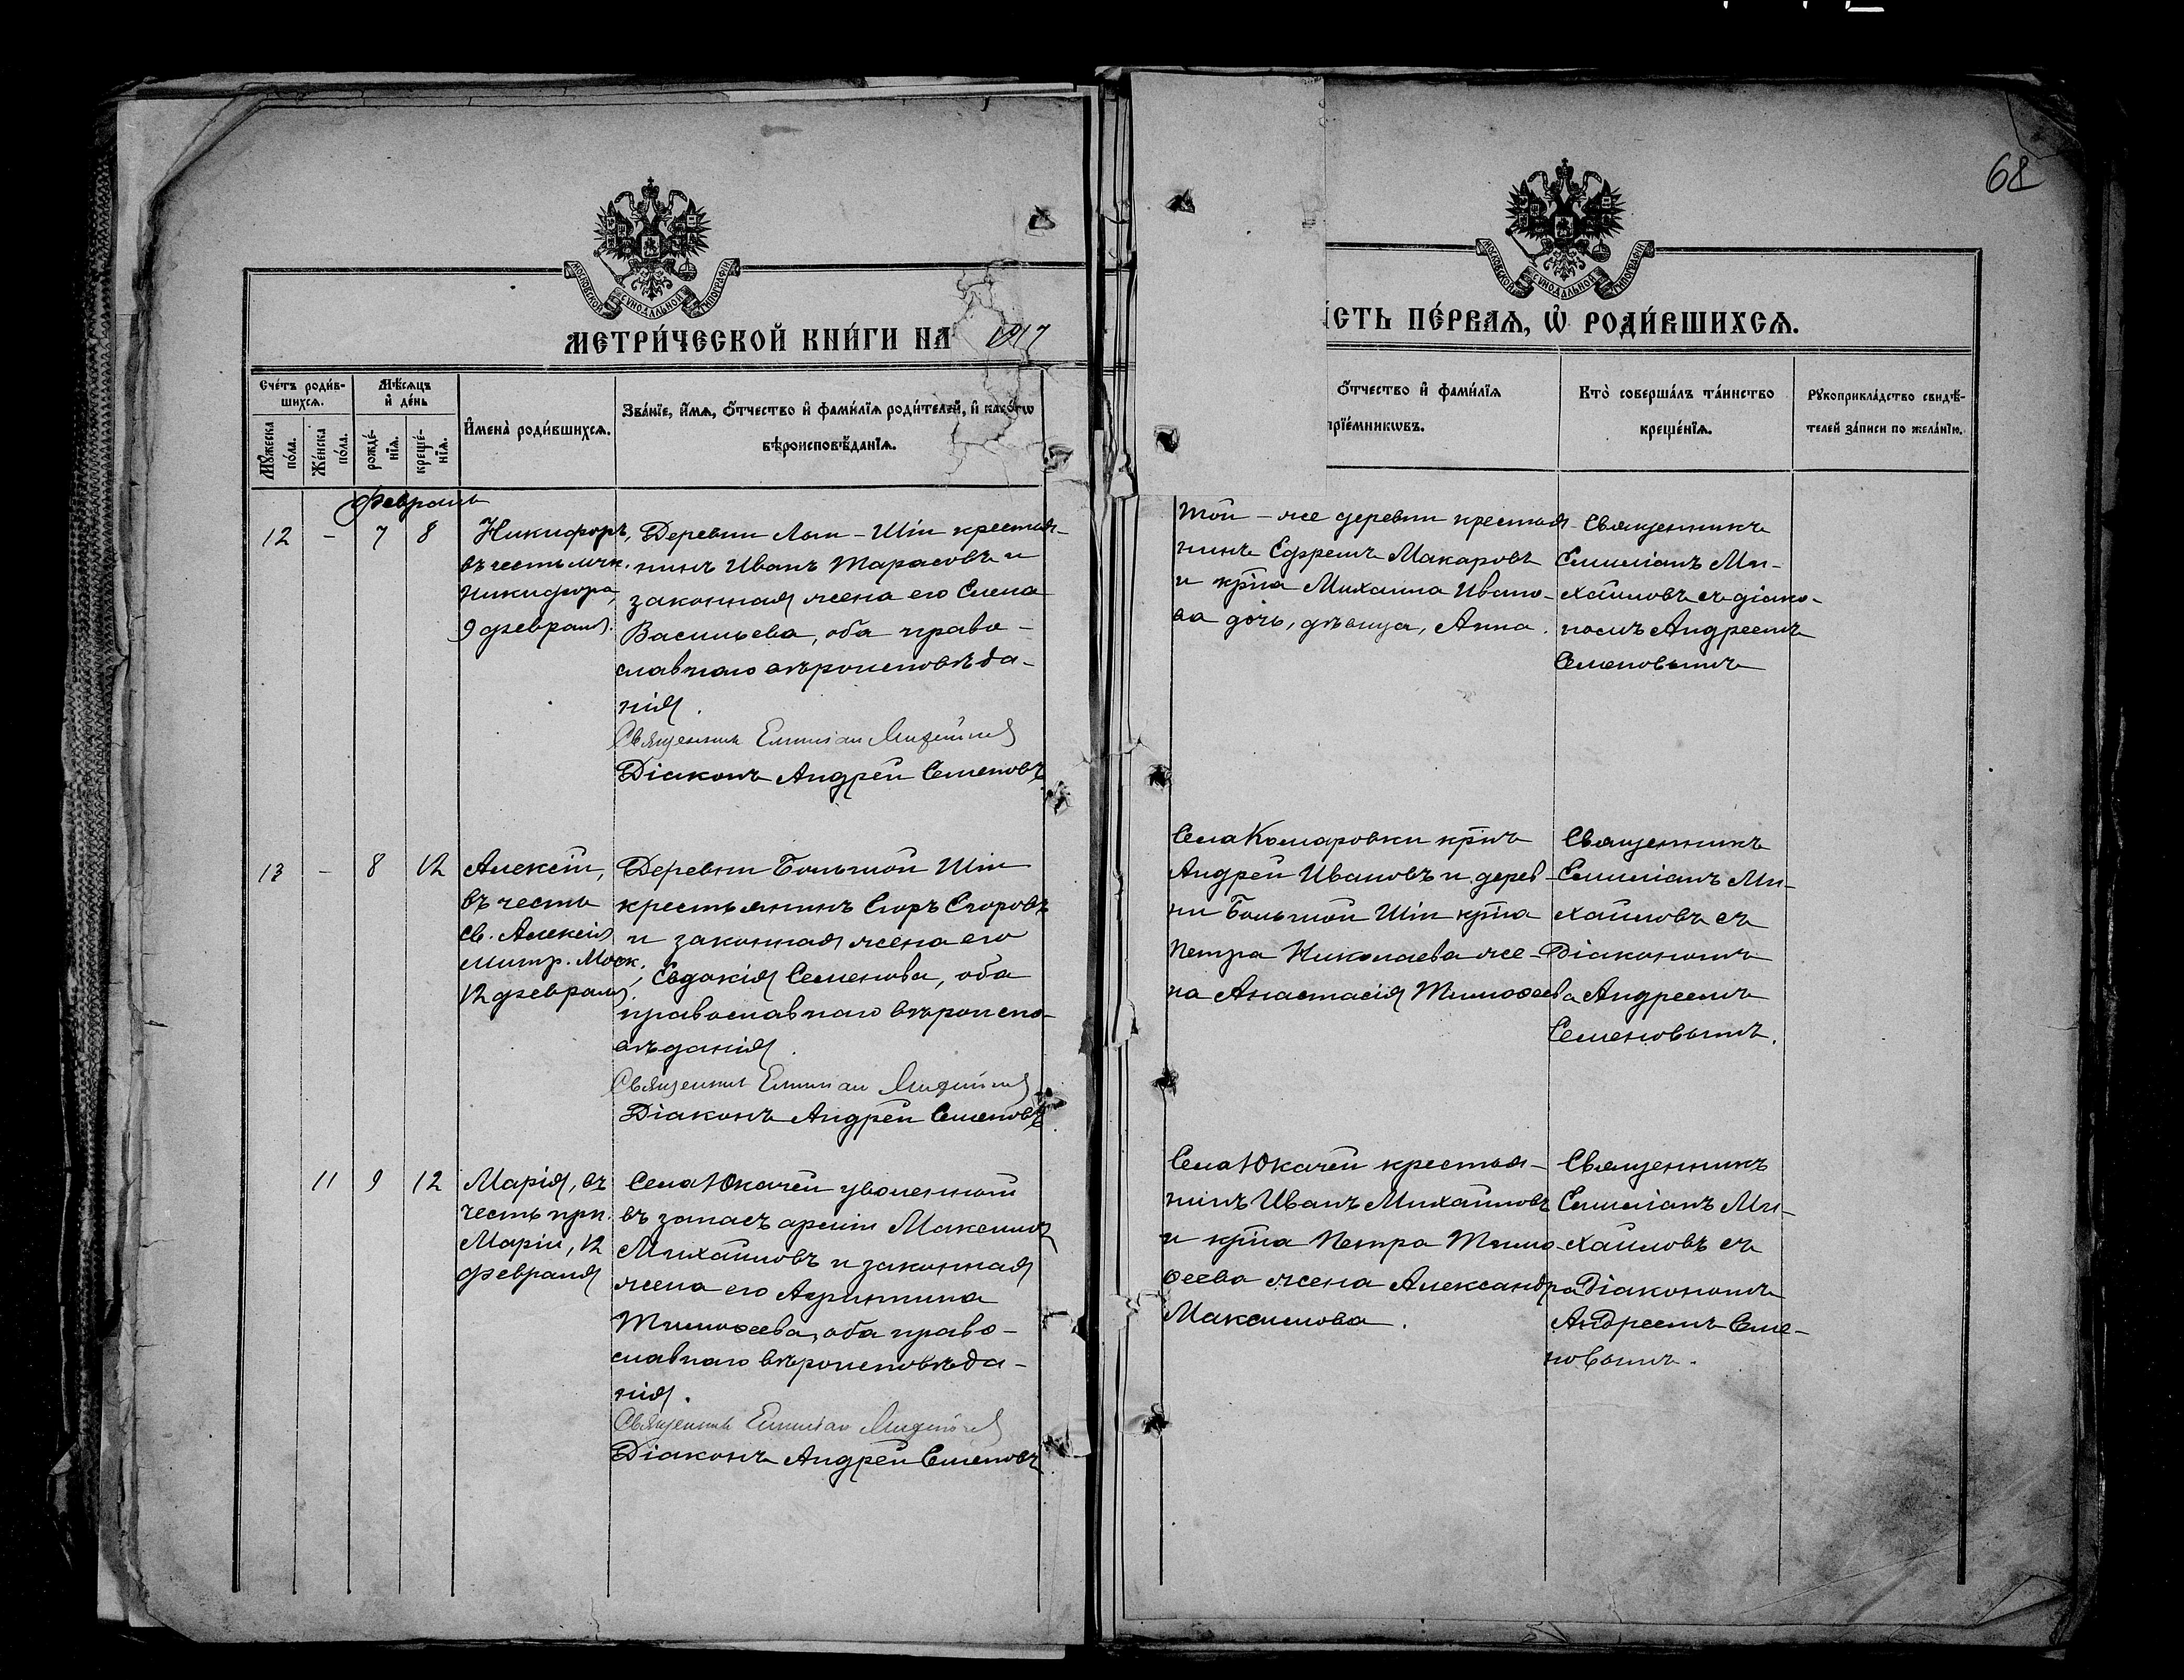 68
МОСКОВСКОЙ СѴНОДАЛЬНОЙ ТИПОГРАФІИ
МЕТРИ́ЧЕСКОЙ КНИ́ГИ НА 1917
Сче́тъ роди́в-
шихсѧ.
Мꙋ́жеска по́ла.
Же́нска по́ла.
Мѣ́сѧцъ и҆ де́нь
рожде́-нїѧ.
креще́-нїѧ.
И҆мена̀ роди́вшихсѧ.
Зва́нїе, и҆́мѧ, ѻ҆́тчество и҆ фами́лїѧ роди́телей, и҆ како́гѡ
вѣроисповѣ́данїѧ.
Февраль
12 - 7 8
Никифоръ,
въ честь мчк.
Никифора,
9 февраля.
Деревни Лып-Ши крестья-
нинъ Иванъ Тарасовъ и
законная жена его Елена
Васильева, оба право-
славнаго вѣроисповѣда-
нія.
Священник Емилиан Михайлов
Діаконъ Андрей Семеновъ
13 - 8 12
Алексій,
въ честь
св. Алексія
митр. Моск.,
12 февраля.
Деревни Большой Ши
крестьянинъ Егоръ Егоровъ
и законная жена его
Евдокія Семенова, оба
православнаго вѣроиспо-
вѣданія.
Священник Емилиан Михайлов
Діаконъ Андрей Семеновъ
11 9 12
Марія, въ
честь прп.
Маріи, 12
февраля
Села Юкачей уволенный
въ запасъ арміи Максимъ
Михайловъ и законная
жена его Агрипина
Тимоѳеева, оба право-
славнаго вѣроисповѣда-
нія.
Священник Емилиан Михайлов
Діаконъ Андрей Семеновъ
МОСКОВСКОЙ СѴНОДАЛЬНОЙ ТИПОГРАФІИ
СТЬ ПЕ́РВАѦ, Ѡ҆ РОДИ́ВШИХСѦ.
ѻ҆́тчество и҆ фами́лїѧ
прїе́мникѡвъ.
Кто̀ соверша́лъ та́инство
креще́нїѧ.
Рꙋкоприкла́дство свидѣ́-
телей за́писи по жела́нїю.
Той-же деревни крестья-
нинъ Ефремъ Макаровъ
и кр͠на Михаила Ивано-
ва дочь, дѣвица, Анна.
Священникъ
Емиліанъ Ми-
хайловъ съ діако-
номъ Андреемъ
Семеновымъ
Села Комаровки кр͠нъ
Андрей Ивановъ и дерев-
ни Большой Ши кр͠на
Петра Николаева же-
на Анастасія Тимоѳеева
Священникъ
Емиліанъ Ми-
хайловъ съ
Діакономъ
Андреемъ
Семеновымъ.
Села Юкачей крестья-
нинъ Иванъ Михайловъ
и кр͠на Петра Тимо-
ѳеева жена Александра
Максимова.
Священникъ
Емиліанъ Ми-
хайловъ съ
Діакономъ
Андреемъ Семе-
новымъ.